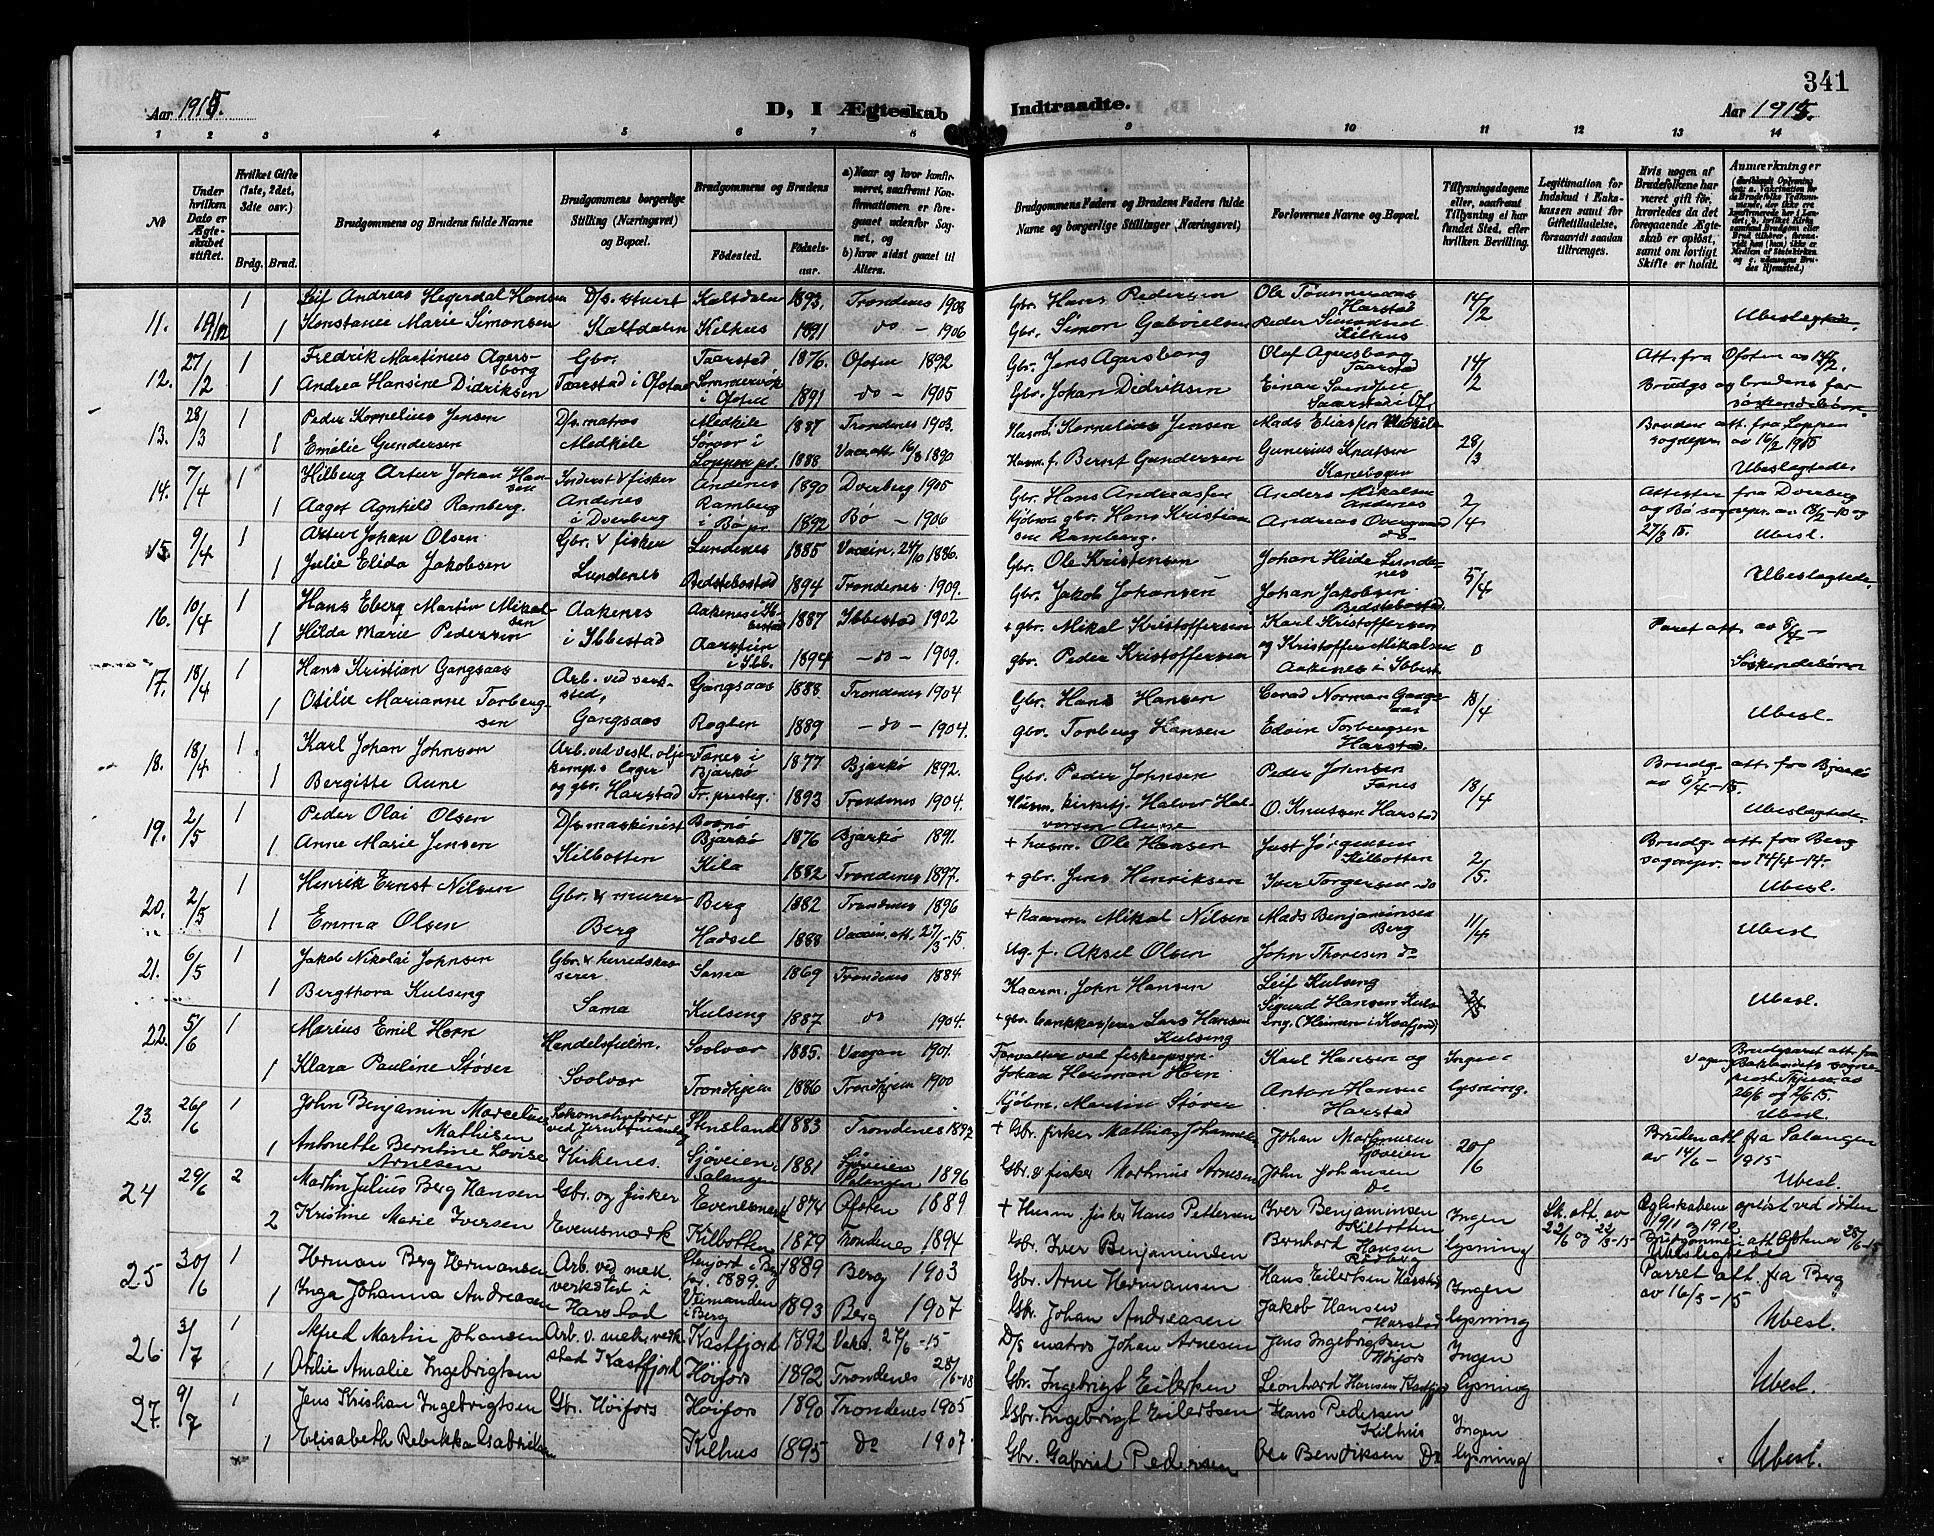 341
Aar 1915.
D, I Ægteskab
Indtraadte.
Aar 1915.
1 2 3 4 5 6 7 8 9 10 11 12 13 14
No
Under hvilken Dato er Ægteskabet stiftet.
Hvilket Gifte (1ste, 2det, 3die osv.)
Brdg. Brud.
Brudgommens og Brudens fulde Navne
Brudgommens borgerlige Stilling (Næringsvei) og Bopæl.
Brudgommens og Brudens
Fødested.
Fødselsaar.
a) Naar og hvor konfirmeret, saafremt Konfirmationen er foregaaet udenfor Sognet, og
b) hvor sidst gaaet til Alters.
Brudgommens Faders og Brudens Faders fulde Navne og borgerlige Stillinger (Næringsvei)
Forlovernes Navne og Bopæl.
Tillysningsdagene eller, saafremt Tillysning ei har fundet Sted, efter hvilken Bevilling.
Legitimation for Indskud i Enkekassen samt for Giftetilladelse, forsaavidt saadan tiltrænges.
Hvis nogen af Brudefolkene har været gift før, hvorledes da det foregaaende Ægteskab er opløst, samt om lovligt Skifte er holdt.
Anmærkninger
11. 19/02 1 Leif Andreas Hegerdal Hansen D/s. stuert Kalsdalen 1893, Trondenes 1908 Gbr. Hans Pedersen Ole Tømmeraas Harstad 14/2
1 Konstanse Marie Simonsen Kalfdalen Kilhus 1891 do - 1906 Gbr. Simon Gabrielsen Peder Simonsen Kilhus Ubeslagtede.
12. 27/2 1 Fredrik Martinus Agersborg Gbr. Taarstad 1876. Ofoten 1892 Gbr. Jens Agersborg Olaf Agersborg Taarstad 14/2 Att. fra Ofoten av 14/2.
1 Andrea Hansine Didriksen Taarstad i Ofoten Sommervik i Ofoten 1891 do - 1905 Gbr. Johan Didriksen Einar Taarstad i Of. Brudgs og brudens far søskendebørn
13. 28/3 1 Peder Kornelius Jensen D/s. matros Medkile 1887 Trondenes 1903. Husm. Kornelius Jensen Mads Eliassen Medkile 28/3 Bruden att. fra Loppen sognepr. av 16/2 1915
1 Emelie Gundersen Medkile Sørvær i Loppen pr. 1888 Vacc att. 16/8 1890 Husm. f. Bernt Gundersen Gunerius Knutsen Kanebogen Ubeslagtede.
14. 7/4 1 Hilberg Artur Johan Hansen Inderst & fisker Andenes 1890 Dverberg 1905 Gbr. Hans Andreassen Anders Mikalsen Andenes 2/4 Attester fra Dverberg og Bø sognepr. av. 18/2-15 og 27/3 15.
1 Aagot Agnhild Ramberg. Andenes i Dverberg Ramberg i Bø pr. 1892 Bø - 1906 Kjøbm. gbr. Hans Kristiansen Ramberg. Andreas Overgaard do Ubesl.
15. 9/4 1 Artur Johan Olsen Gbr. & fisker Lundenes 1885 Vaccin. 24/10 1886. Gbr. Ole Kristensen Johan Heide Lundenes 5/4
1 Julie Elida Jakobsen Lundenes Bedstebostad 1894 Trondenes 1909. Gbr. Jakob Johansen Johan Jakobsen Bedstebostad. Ubeslagtede.
16. 10/4 1 Hans Eberg Martin Mikalsen Aakenes Aakenes i Ibbestad 1887 Ibbestad 1902 + gbr. Mikal Kristoffersen Karl Kristoffersen Paret att. av 8/4 -
1 Hilda Marie Pedersen i Ibbestad Aarstein i Ibb. 1894 - do - 1909. gbr. Peder Kristoffersen og Kristoffer Mikalsen Aakenes i Ibbest. 0 Søskendebørn
17. 18/4 1 Hans Kristian Gangsaas Arb. ved verksted, Gangsaas 1888 Trondenes 1904 Gbr. Hans Hansen Conrad Norman Gangsaas 18/4
1 Otilie Marianne Torbergsen Gangsaas Rogten 1889 - do - 1904. gbr. Torberg Hansen Edvin Torbergsen Harstad. Ubesl.
18. 18/4 1 Karl Johan Johnsen Arb. ved vestl. oljekomp.s lager Fanes i Bjarkø 1877 Bjarkø 1892. Gbr. Peder Johnsen Peder Johnsen Fanes 18/4 Brudg. att. fra Bjarkø av 6/4-15.
1 Bergitte Aune og gbr. Harstad Tr. presteg. 1893 Trondenes 1904. Husm. kirketj. Halvor Halvorsen Aune O. Knutsen Harstad Ubeslagtede.
19. 2/5 1 Peder Olai Olsen D/s. maskinist Bjarkø 1876 Bjarkø 1891. + husm. Ole Hansen Just Jørgensen Kilbotten 2/5. Brudg. att. fra Berg sognepr. av 14/4-14.
1 Anne Marie Jensen Kilbotten Kila 1882 Trondenes 1897. + gbr. Jens Henriksen Iver Torgersen do Ubesl.
20. 2/5 1 Henrik Ernst Nilsen Gbr. & murer Berg 1882 Trondenes 1896 + kaarm. Mikal Nilsen Mads Benjaminsen Berg 11/4
1 Emma Olsen Berg Hadsel 1888 Vaccin. att. 27/3-15. Ug. f. Aksel Olsen John Thoresen do Ubesl.
21. 6/5 1 Jakob Nikolai Johnsen Gbr. & herredskasserer Sama 1869 Trondenes 1884. Kaarm. John Hansen Leif Kulseng
1 Bergthora Kulseng Sama Kulseng 1887 do 1904. + gbr. bankkasserer Lars Hansen Kulseng Sigurd Hansen Kulseng. (Heimen i Kvæfjord) 2/5 Ubesl.
22. 5/6 1 Marius Emil Horn Handelsfuldm. Svolvær 1885. Vaagan 1901. Forvalter ved fiskeopsyn. Johan Herman Horn Karl Hansen og Ingen Brudeparet att. fra Vaagan Baklandets sogneprest Trhjem. av 26/6 og 4/6 15.
1 Klara Pauline Støver Svolvær Trondhjem 1886 Trondhjem 1900 Kjøbm. Martin Støver Anton Hansen Harstad lysning. Ubesl.
23. 26/6 1 John Benjamin Marcelius Mathisen Lokomotivfører ved Jernbaneanlæg Stensland 1883 Trondenes 1897 + Gbr. fisker Mathias Johannesen Johan Martinusen Sjøveien 20/6 Bruden att. fra Salangen av 14/6 - 1915
1 Antonette Berntine Lovise Arnesen Kirkenes. Sjøveien, Salangen 1881 Sjøveien Salangen 1896 Gbr. & fisker Martinus Arnesen John Johansen Do Ubesl.
24 29/6 2 Martin Julius Berg Hansen Gbr. og fisker Evenesmark 1874 Ofoten 1889 + Husm fisker Hans Pettersen Iver Benjaminsen Kilbotten Ingen Sk. att. av 22/6 og 22/3-15 Ægteskabene opløst ved døden 1911 og 1910. Brudgommens att. Ofoten av 28/6-15
2 Kristine Marie Iversen Evenesmark Kilbotten 1879 Trondenes 1894 Gbr. Iver Benjaminsen Bernhard Hansen lysning Ubeslegtede
25 30/6 1 Herman Berg Hermansen Arb. ved mek. verksted i Stenjord i Berg 1889 Berg 1903 Gbr. Arne Hermansen Hans Eilertsen Harstad Ingen Parret att. fra Berg av 16/3-15
1 Inga Johanna Andreasen Harstad i Berg 1893 Berg 1907 Gbr. Johan Andreasen Jakob Hansen Harstad lysning Ubesl.
26. 3/7 1 Alfred Martin Johansen Arb. v. mek. verksted Kastfjord Kastfjord 1892 Vaks. 27/6-15 D/s matros Johan Arnesen Jens Ingebrigtsen Høifors Ingen
1 Otilie Amalie Ingebrigtsen Høifors 1892 Trondenes 28/6-08 Gbr. Ingebrigt Eilertsen Leonhard Hansen Kastfjord lysning Ubesl.
27. 9/7 1 Jens Kristian Ingebrigtsen Gbr. Høifors Høifors 1890 Trondenes 1905 Gbr. Ingebrigt Eilertsen Hans Pedersen Kilhus Ingen
1 Elisabeth Rebekka Gabrielsen Kilhus 1895 Do 1907. Gbr. Gabriel Pedersen Ole Bendiksen Do lysning Ubesl.